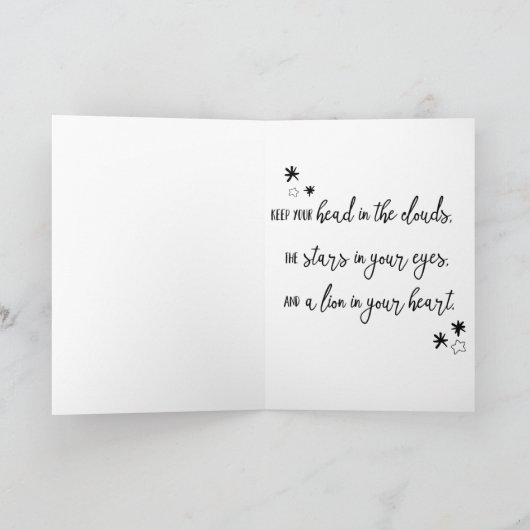 KEEP YOUR head in the clouds,
THE stars in your eyes,
AND a lion in your heart.